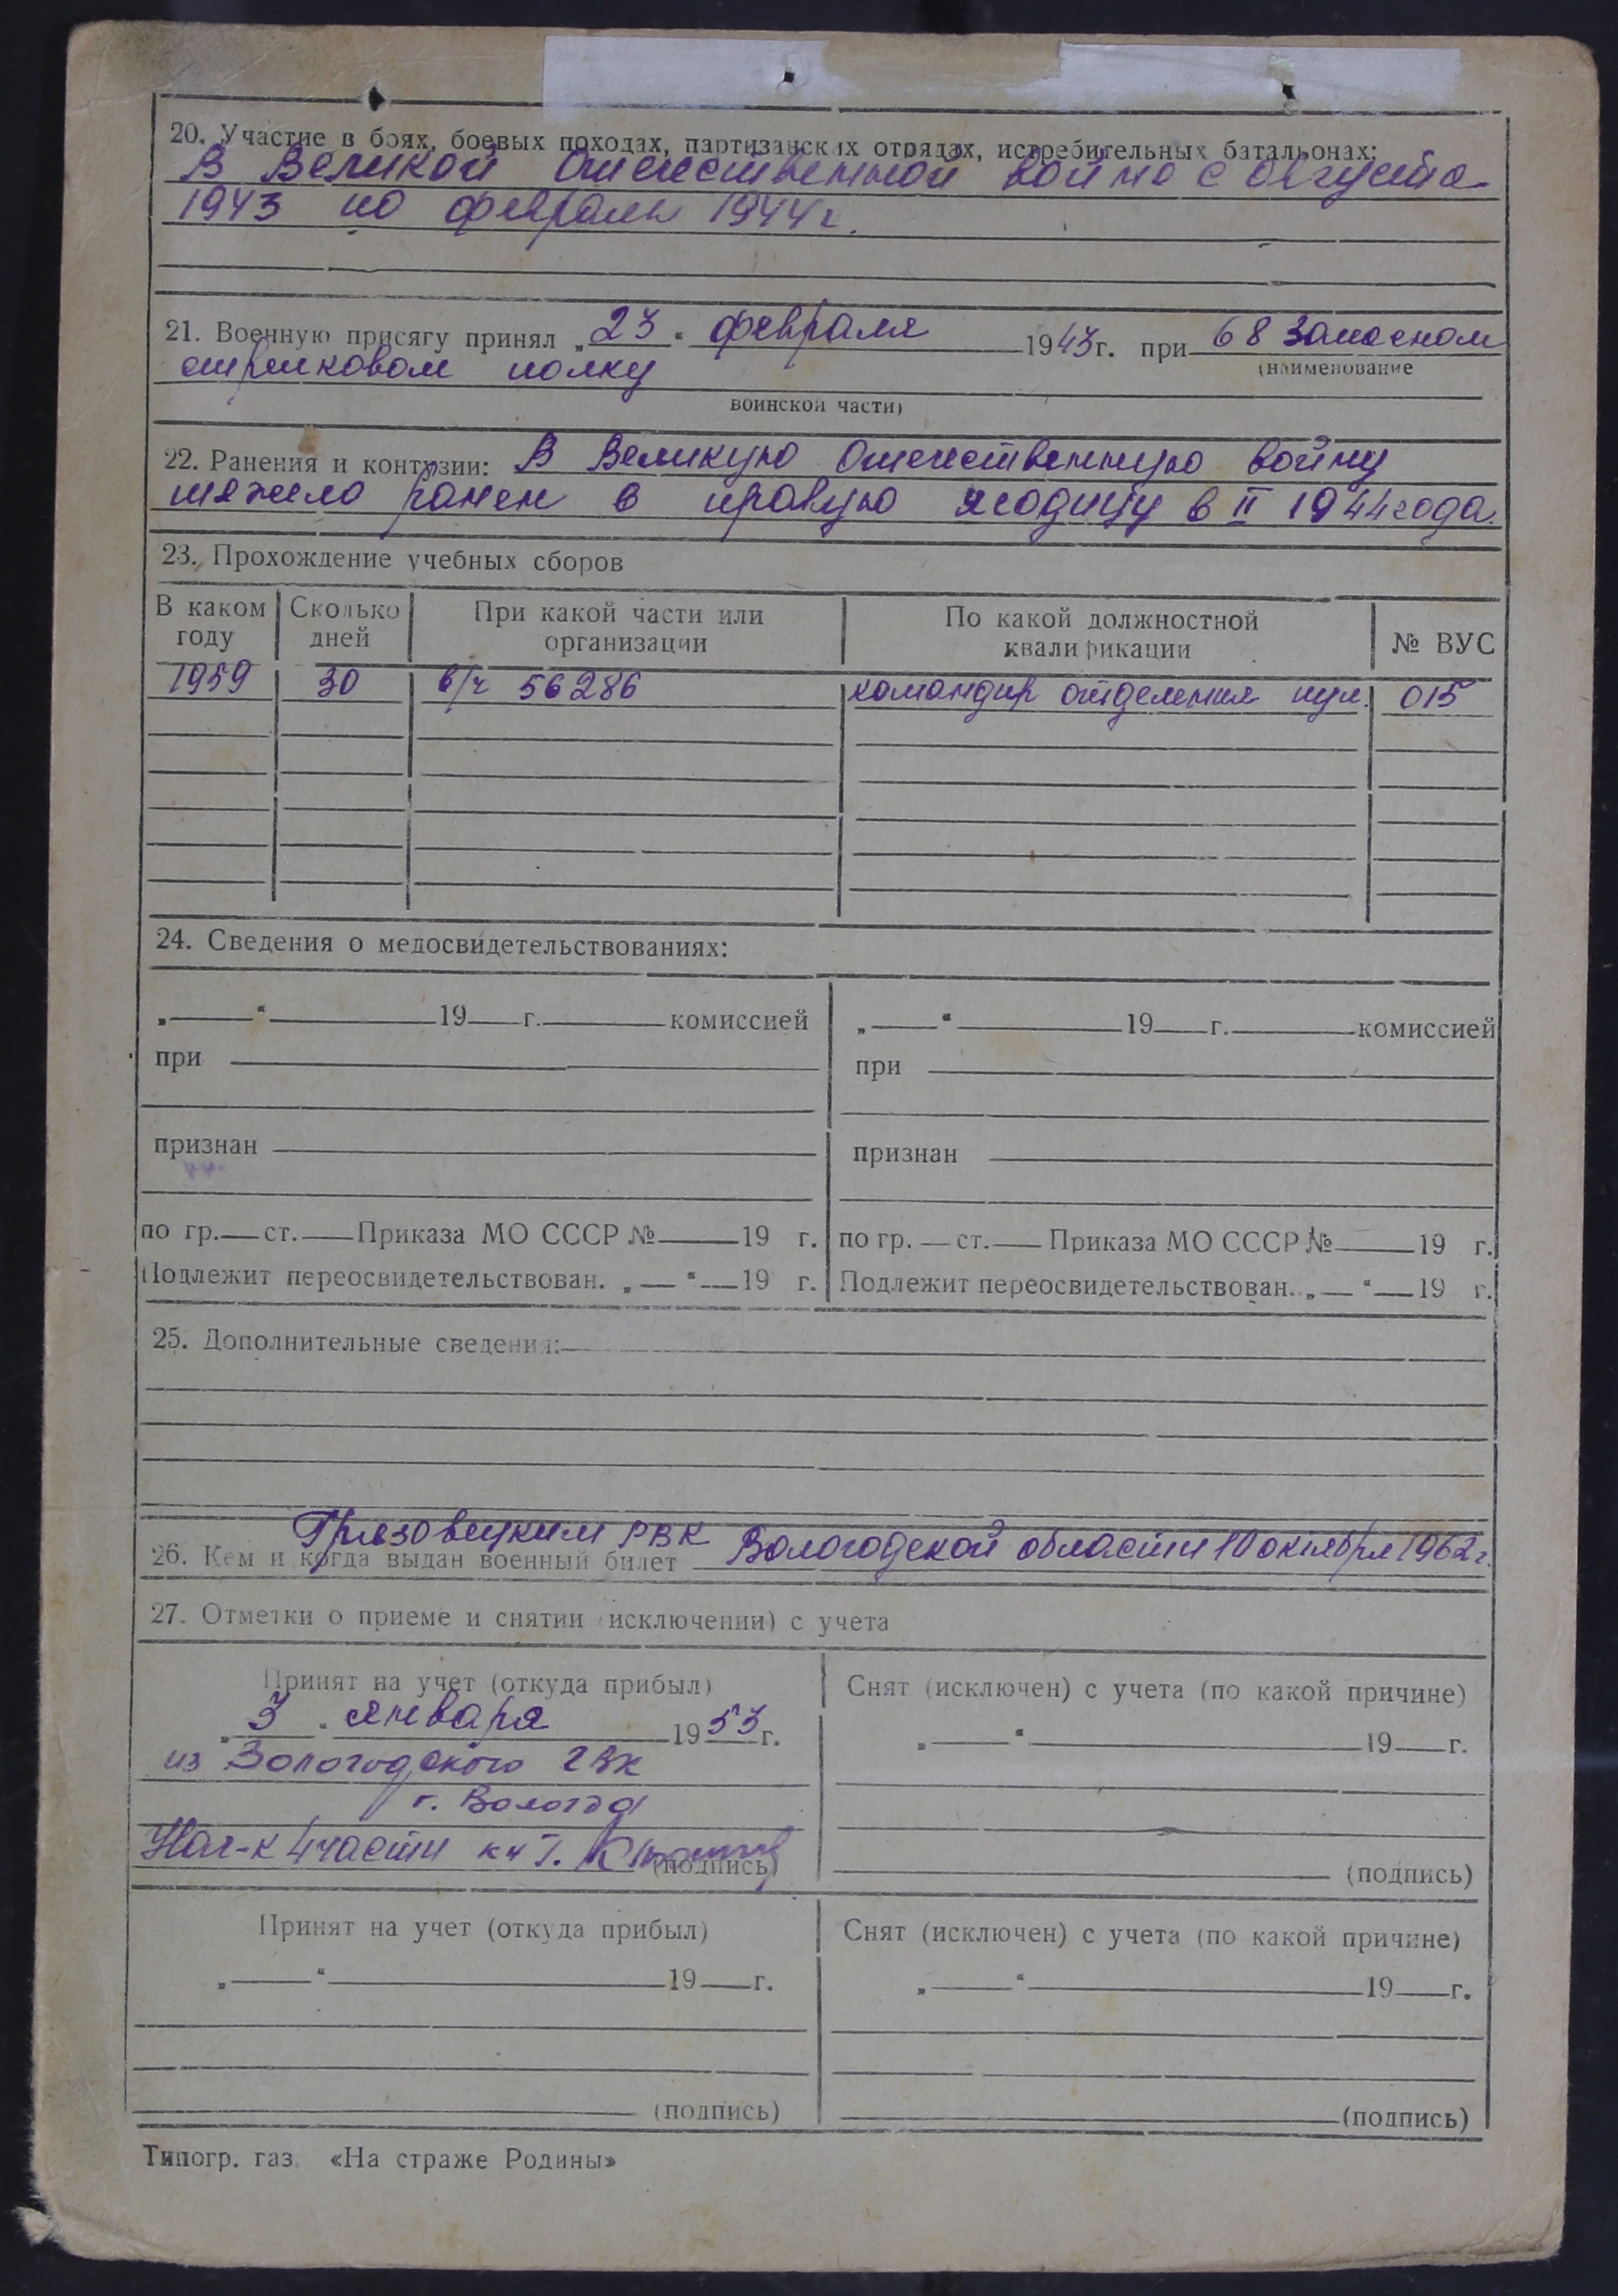 20. Участие в боях, боевых походах, партизанских отрядах, истребительных батальонах:
В Великой Отечественной войне с августа
1943 по февраль 1944 г.
21. Военную присягу принял „23“ февраля 1943 г. при 68 запасном
(наименование
стрелковом полку
воинской части)
22. Ранения и контузии: В Великую Отечественную войну
тяжело ранен в правую ягодицу в II 1944 года.
23. Прохождение учебных сборов
В каком году Сколько дней При какой части или организации По какой должностной квалификации № ВУС
1959 30 в/ч 56286 командир отделения пул. 015
24. Сведения о медосвидетельствованиях:
„ “ 19 г. комиссией „ “ 19 г. комиссией
при при
признан признан
по гр. ст. Приказа МО СССР № 19 г. по гр. ст. Приказа МО СССР № 19 г.
Подлежит переосвидетельствован. „ “ 19 г. Подлежит переосвидетельствован. „ “ 19 г.
25. Дополнительные сведения:
Грязовецким РВК Вологодской области 10 октября 1962 г.
26. Кем и когда выдан военный билет
27. Отметки о приеме и снятии (исключении) с учета
Принят на учет (откуда прибыл) Снят (исключен) с учета (по какой причине)
„3“ января 1953 г. „ “ 19 г.
из Вологодского ГВК
г. Вологда
Нач-к 4 части к-н т.
(подпись) (подпись)
Принят на учет (откуда прибыл) Снят (исключен) с учета (по какой причине)
„ “ 19 г. „ “ 19 г.
(подпись) (подпись)
Типогр. газ. «На страже Родины»